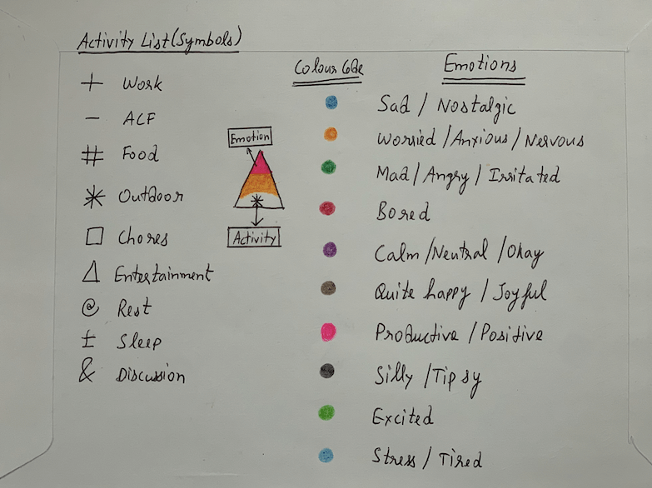 Activity List(Symbols)
+ Work
− ACF
# Food
* Outdoor
□ Chores
△ Entertainment
@ Rest
± Sleep
& Discussion
Emotion
*
Activity
Colour Code
Emotions
Sad / Nostalgic
Worried / Anxious / Nervous
Mad / Angry / Irritated
Bored
Calm / Neutral / Okay
Quite happy / Joyful
Productive / Positive
Silly / Tipsy
Excited
Stress / Tired